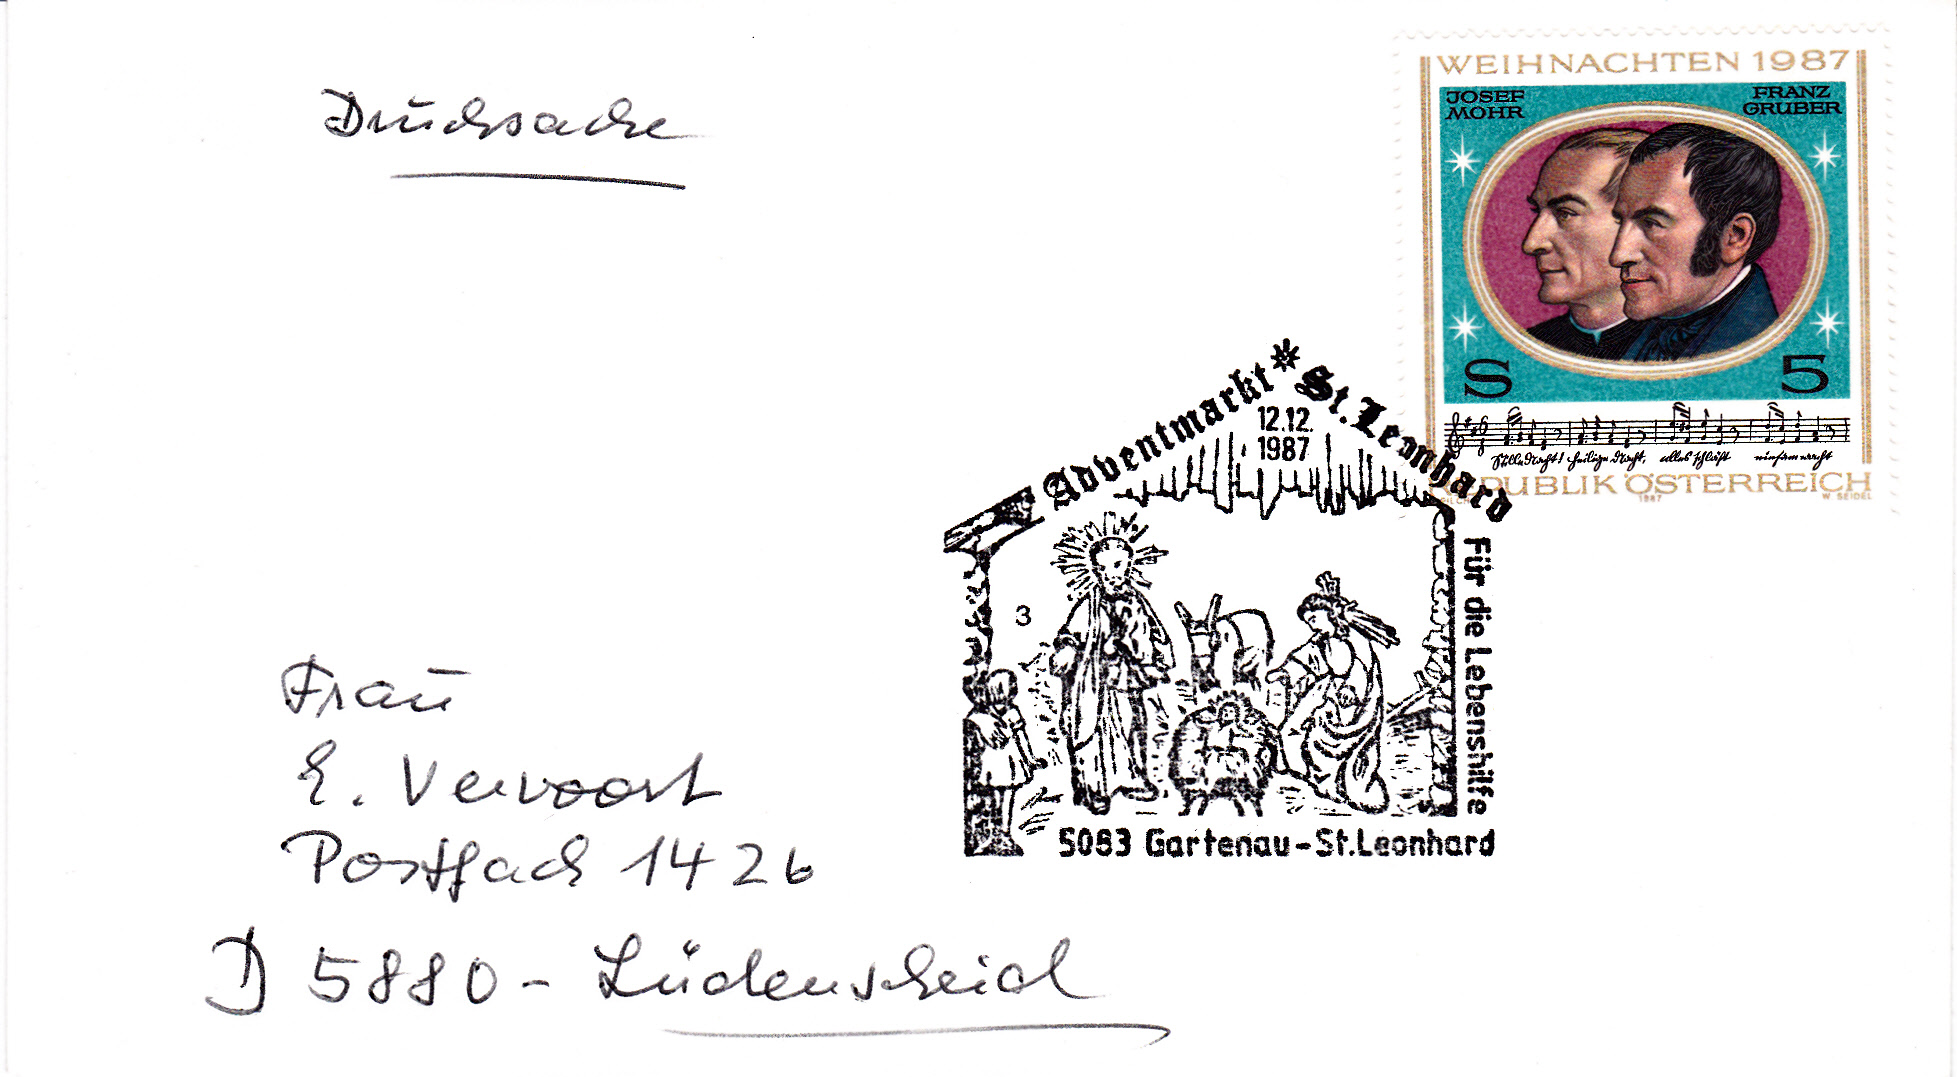 Drucksache
WEIHNACHTEN 1987
JOSEF
MOHR
FRANZ
GRUBER
S 5
Stille Nacht! Heilige Nacht, alles schläft einsam wacht
REPUBLIK ÖSTERREICH
1987
W. SEIDEL
Adventmarkt St. Leonhard
12.12.
1987
3
Für die Lebenshilfe
5083 Gartenau-St. Leonhard
Frau
E. Vervoort
Postfach 1426
D 5880 - Lüdenscheid